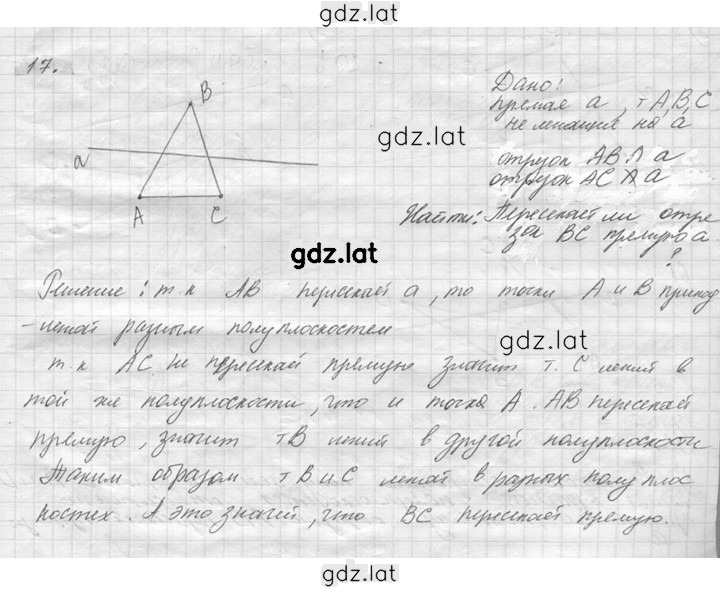 gdz.lat
17.
B
a
A C
gdz.lat
gdz.lat
Дано:
прямая a, т A,B,C
не лежащие на a
отрезок AB ∩ a
отрезок AC a
Найти: Пересекает ли отре
зок BC прямую a
?
Решение: т.к AB пересекает a, то точки A и B принад
-лежат разным полуплоскостям
gdz.lat
т.к AC не пересекай прямую значит т. C лежит в
той же полуплоскости, что и точка A. AB пересекает
прямую, значит тB лежит в другой полуплоскости
Таким образом тB и C лежат в разных полуплос
костях. А это значит, что BC пересекает прямую.
gdz.lat